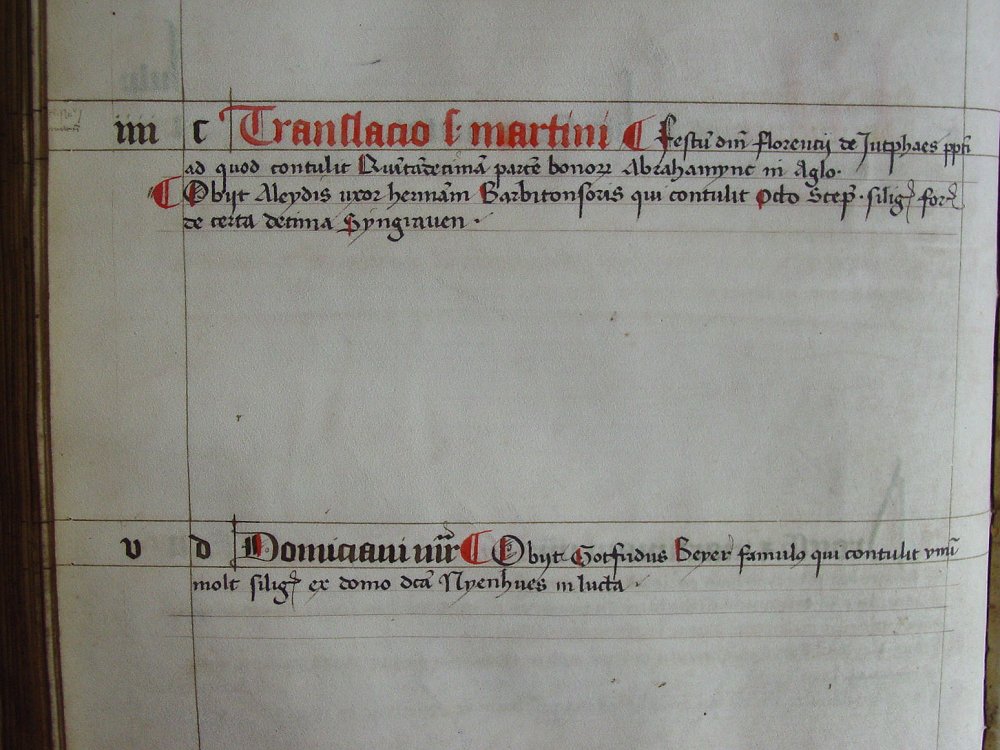 iiii c Translacio s. martini Festū dni Florencij de Jutphaes ppti
ad quod contulit Quītādecimā partē bonorꝝ Abrahamync in Aglo.
Obijt Aleydis uxor hermāni Barbitonsoris qui contulit Octo Scep. silig
de certa decima Syngraven.
v d Domiciani mr̄ Obijt Gotfridus Beyer famulꝰ qui contulit vnū
molt silig ex domo dcā Nyenhues in lucta.